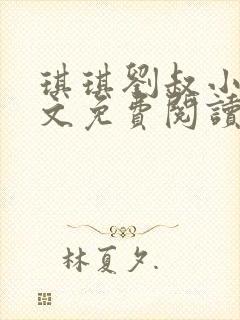 琪琪劉叔小
文免費閱讀
林夏夕.